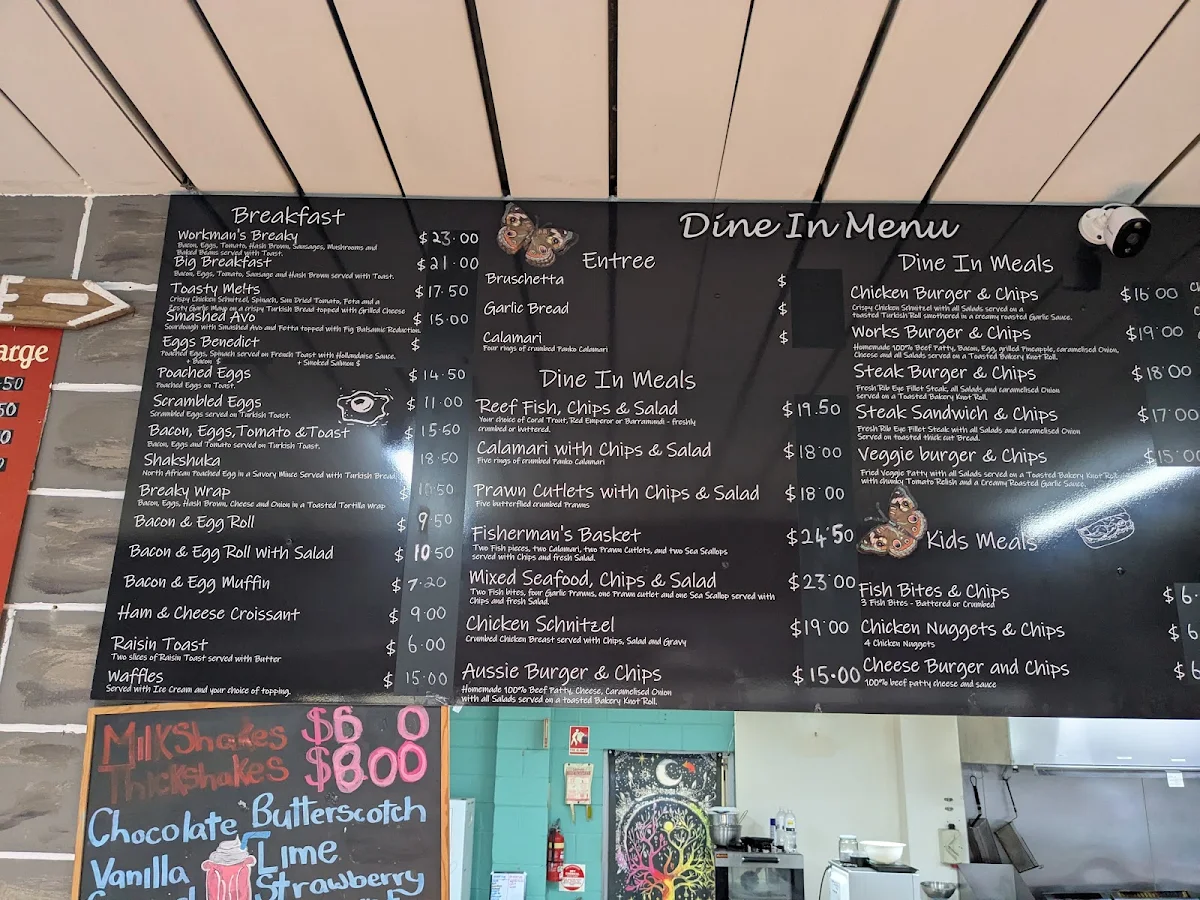 Breakfast
Workman's Breaky $23.00
Bacon, Eggs, Tomato, Hash Brown, Sausages, Mushrooms and
Baked Beans served with Toast.
Big Breakfast $21.00
Bacon, Eggs, Tomato, Sausage and Hash Brown served with Toast.
Toasty Melts $17.50
Crispy Chicken Schnitzel, Spinach, Sun Dried Tomato, Feta and a
Zesty Garlic Mayo on a crispy Turkish Bread topped with Grilled Cheese
Smashed Avo $15.00
Sourdough with Smashed Avo and Fetta topped with Fig Balsamic Reduction
Eggs Benedict $
Poached Eggs, Spinach served on French Toast with Hollandaise Sauce.
+ Bacon $ + Smoked Salmon $
Poached Eggs $14.50
Poached Eggs on Toast.
Scrambled Eggs $11.00
Scrambled Eggs served on Turkish Toast.
Bacon, Eggs, Tomato & Toast $15.50
Bacon, Eggs and Tomato served on Turkish Toast.
Shakshuka 18.50
North African Poached Egg in a Savory Mince Served with Turkish Bread
Breaky Wrap $ 10.50
Bacon, Eggs, Hash Brown, Cheese and Onion in a Toasted Tortilla Wrap
Bacon & Egg Roll $9.50
Bacon & Egg Roll With Salad $10.50
Bacon & Egg Muffin $7.20
Ham & Cheese Croissant $9.00
Raisin Toast $6.00
Two slices of Raisin Toast served with Butter
Waffles $15.00
Served with Ice Cream and your choice of topping.
Dine In Menu
Entree
Bruschetta $
Garlic Bread $
Calamari $
Four rings of crumbed Panko Calamari
Dine In Meals
Reef Fish, Chips & Salad $19.50
Your choice of Coral Trout, Red Emperor or Barramundi - freshly
crumbed or battered.
Calamari with Chips & Salad $18.00
Five rings of crumbed Panko Calamari
Prawn Cutlets with Chips & Salad $18.00
Five butterflied crumbed Prawns
Fisherman's Basket $24.50
Two Fish pieces, two Calamari, two Prawn Cutlets, and two Sea Scallops
served with Chips and fresh Salad.
Mixed Seafood, Chips & Salad $23.00
Two Fish bites, four Garlic Prawns, one Prawn cutlet and one Sea Scallop served with
Chips and fresh Salad.
Chicken Schnitzel $19.00
Crumbed Chicken Breast served with Chips, Salad and Gravy
Aussie Burger & Chips $15.00
Homemade 100% Beef Patty, Cheese, Caramelised Onion
with all Salads served on a toasted Bakery Knot Roll.
Dine In Meals
Chicken Burger & Chips $16.00
Crispy Chicken Schnitzel with all Salads served on a
toasted Turkish Roll smothered in a creamy roasted Garlic Sauce.
Works Burger & Chips $19.00
Homemade 100% Beef Patty, Bacon, Egg, grilled Pineapple, caramelised Onion,
Cheese and all Salads served on a Toasted Bakery Knot Roll.
Steak Burger & Chips $18.00
Fresh Rib Eye Fillet Steak, all Salads and caramelised Onion
served on a Toasted Bakery Knot Roll.
Steak Sandwich & Chips $17.00
Fresh Rib Eye Fillet Steak with all Salads and caramelised Onion
Served on toasted thick cut Bread.
Veggie burger & Chips $15.00
Fried Veggie Patty with all Salads served on a Toasted Bakery Knot Roll
with chunky Tomato Relish and a Creamy Roasted Garlic Sauce.
Kids Meals
Fish Bites & Chips $6.
3 Fish Bites - Battered or Crumbed
Chicken Nuggets & Chips $6
4 Chicken Nuggets
Cheese Burger and Chips $6
100% beef patty cheese and sauce
arge
.50
Milkshakes $6 0
Thickshakes $8.00
Chocolate Butterscotch
Vanilla Lime
Strawberry